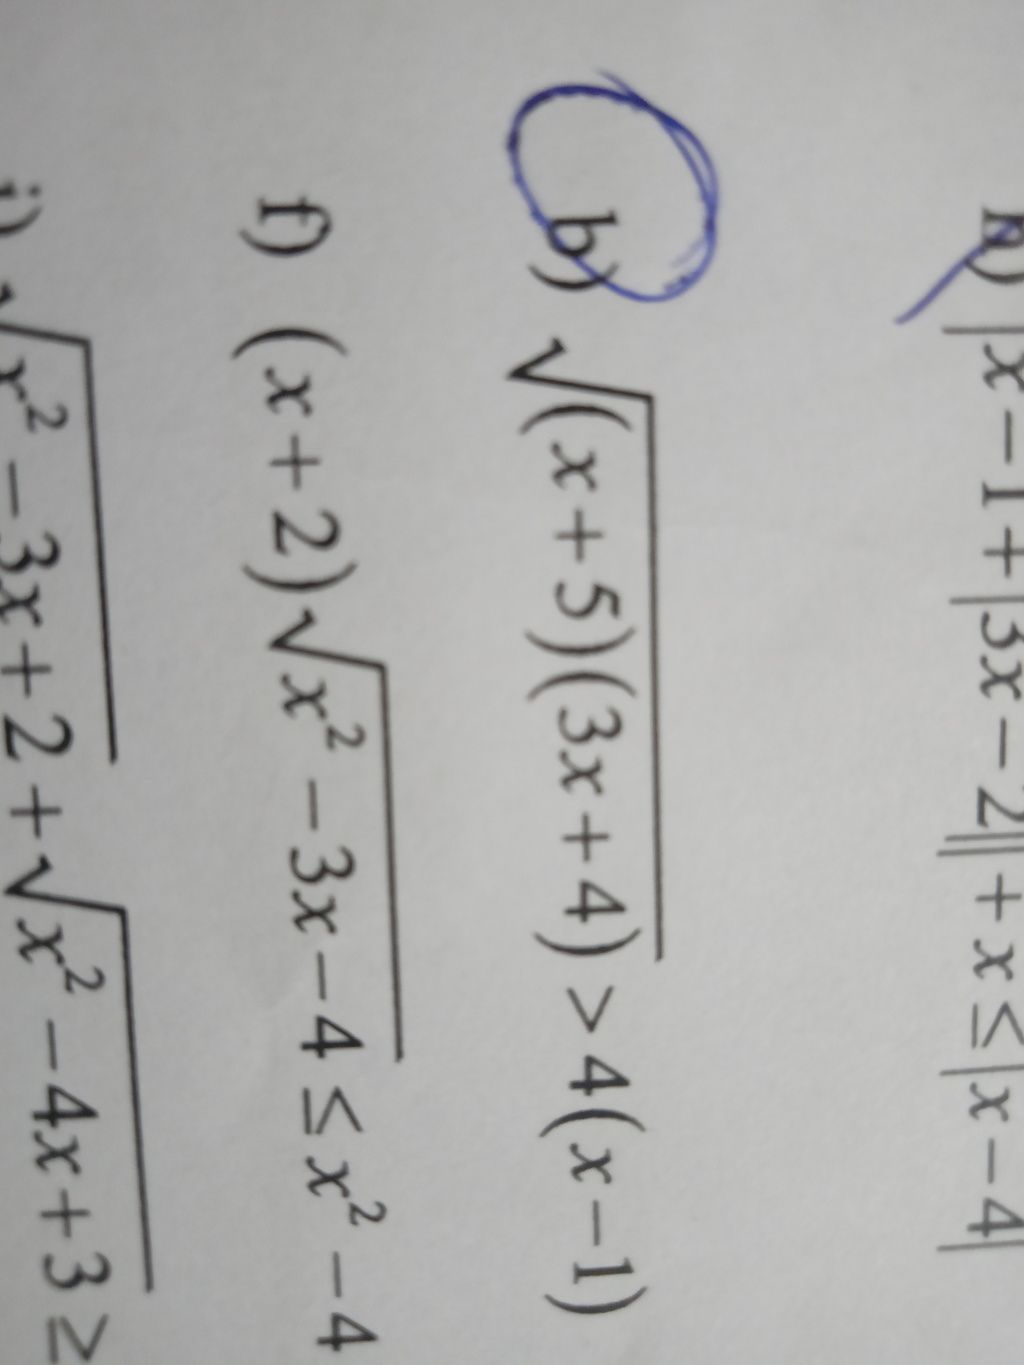 |x-1+|3x-2||+x≤|x-4|
b) √(x+5)(3x+4) > 4(x-1)
f) (x+2)√x²-3x-4 ≤ x²-4
√x²-3x+2+√x²-4x+3 ≥